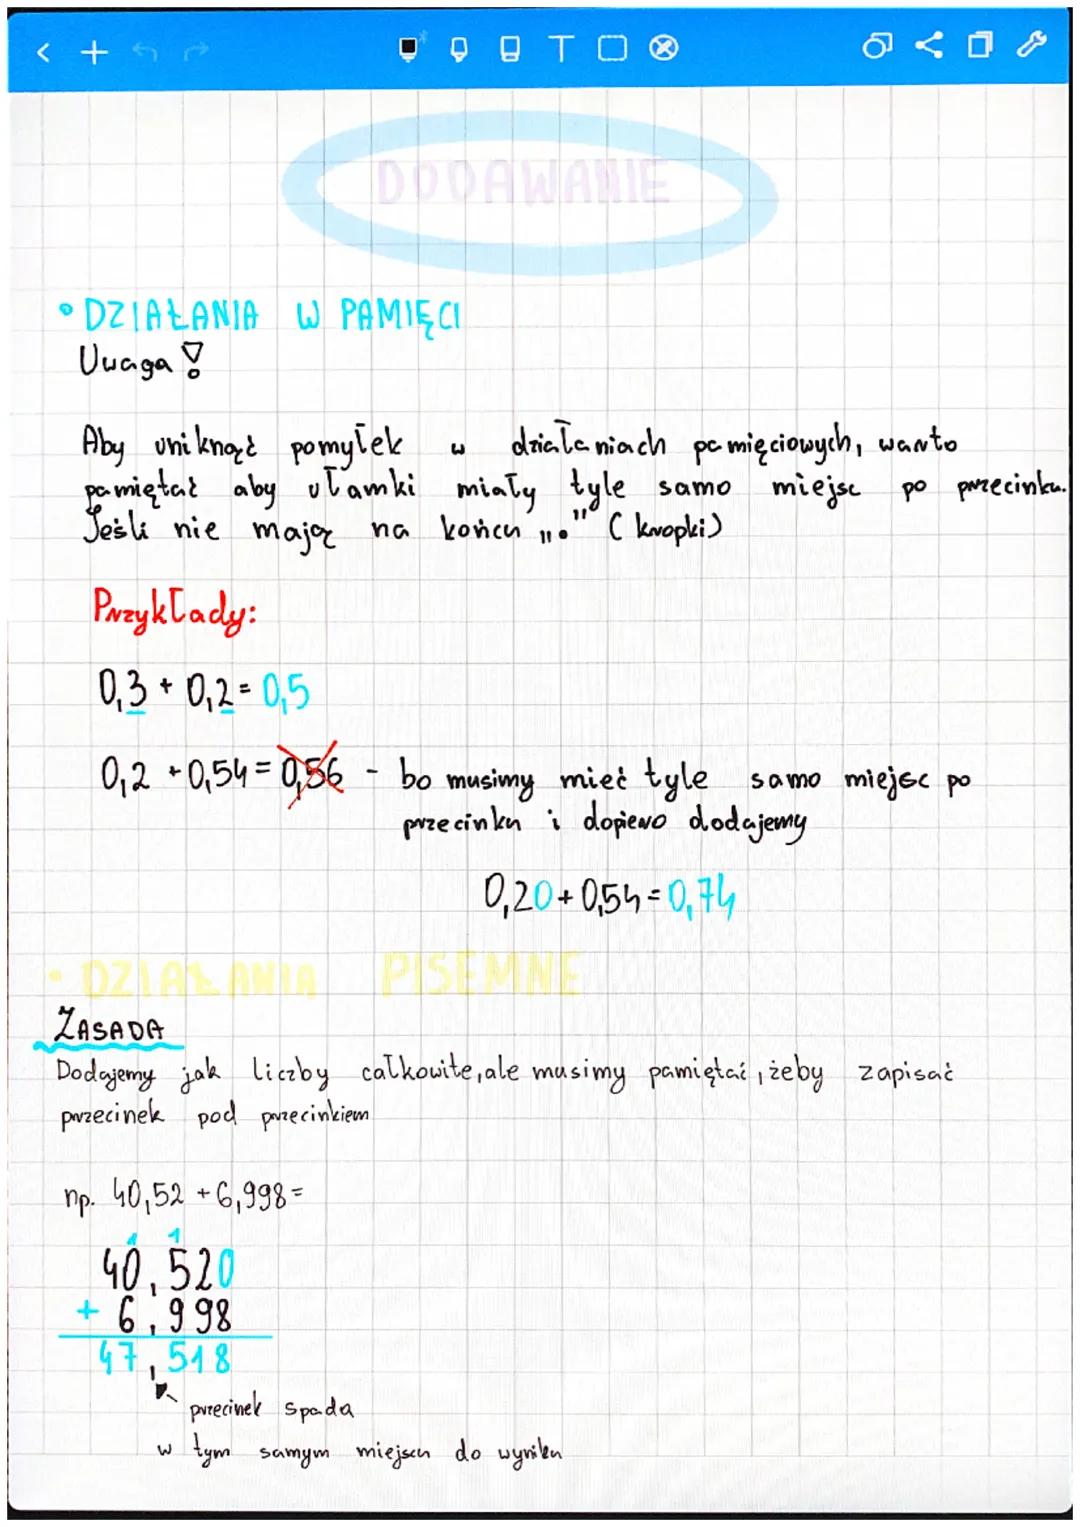 DODAWANIE
• DZIAŁANIA W PAMIĘCI
Uwaga!
Aby uniknąć pomyłek w działaniach pamięciowych, warto
pamiętać aby ułamki miały tyle samo miejsc po przecinku.
Jeśli nie mają na końcu „•" (kropki)
Przykłady:
0,3 + 0,2 = 0,5
0,2 + 0,54 = 0,56 - bo musimy mieć tyle samo miejsc po
przecinku i dopiero dodajemy
0,20 + 0,54 = 0,74
• DZIAŁANIA PISEMNE
ZASADA
Dodajemy jak liczby całkowite, ale musimy pamiętać, żeby zapisać
przecinek pod przecinkiem
np. 40,52 + 6,998 =
1 1
40,520
+ 6,998
47,518
przecinek spada
w tym samym miejscu do wyniku